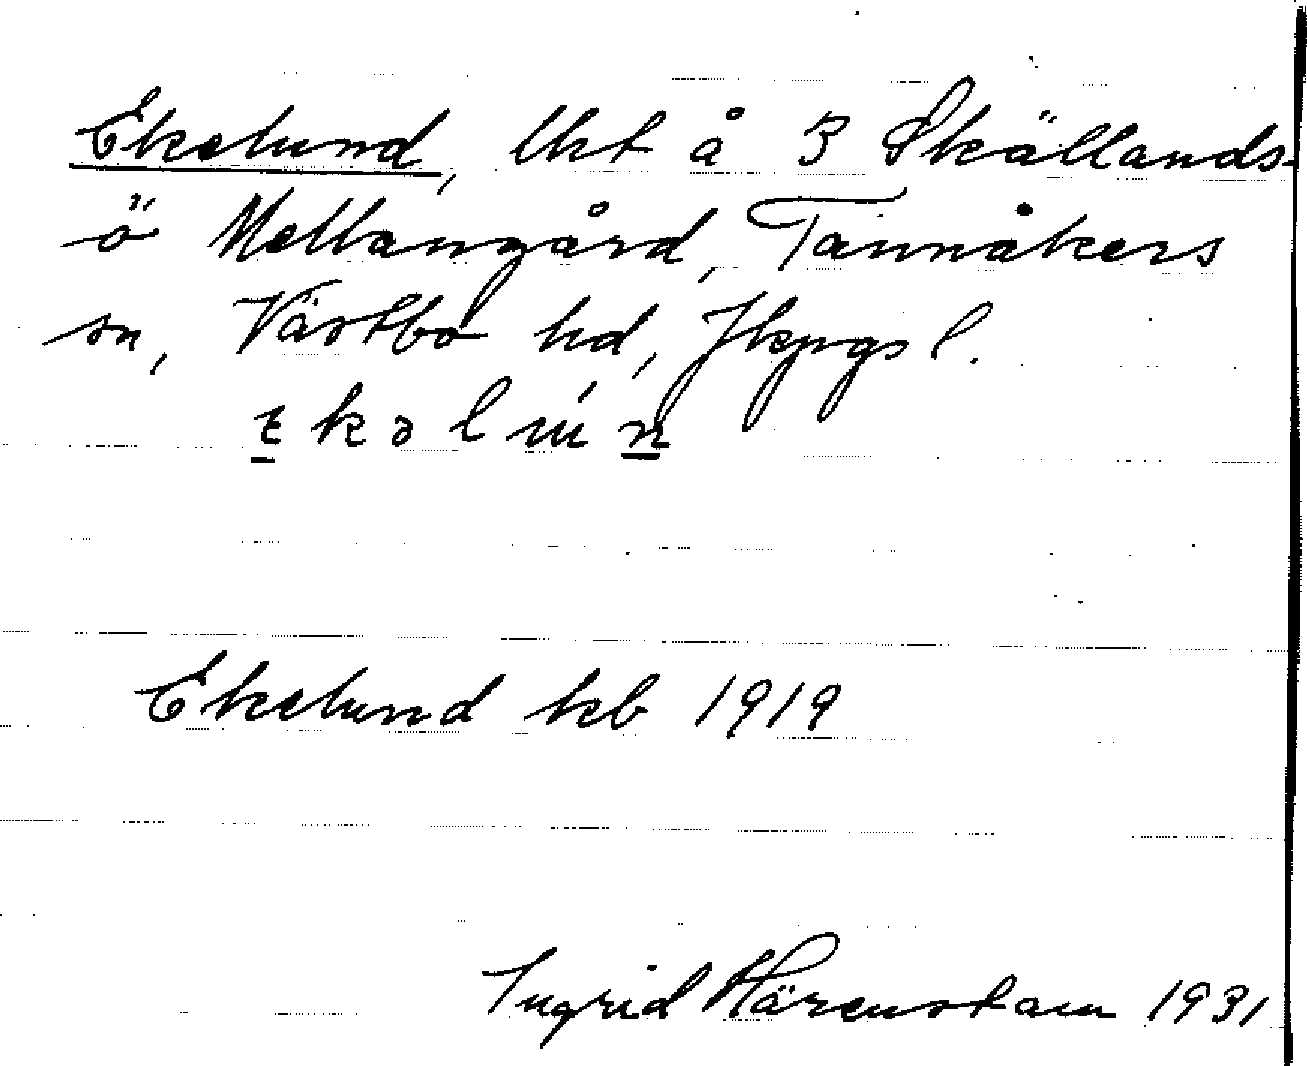 Ekelund, lht å 3 Skällands-
ö Mellangård, Tannåkers
sn, Västbo hd, Jkpgs l.
ekəlun
Ekelund kb 1919
Ingrid Härenstam 1931